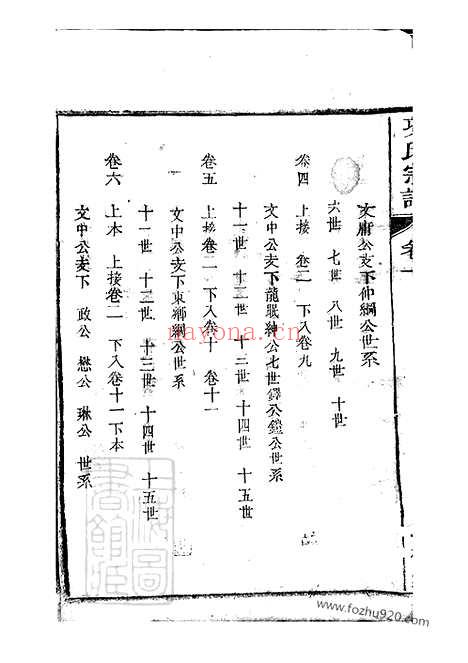 氏宗譜
卷一
文庸公支下仲綱公世系
六世 七世 八世 九世 十世
卷四 上接 卷二 下入卷九
文中公支下龍眠紳公七世鐸公鎧公世系
十一世 十二世 十三世 十四世 十五世
卷五 上接卷二 下入卷十 卷十一
文中公支下東鄉綱公世系
十一世 十二世 十三世 十四世 十五世
卷六 上本 上接卷二 下入卷十一下本
文中公支下 政公 懋公 琳公 世系
nayona.cn
上海圖書館藏
www.fozhu920.com